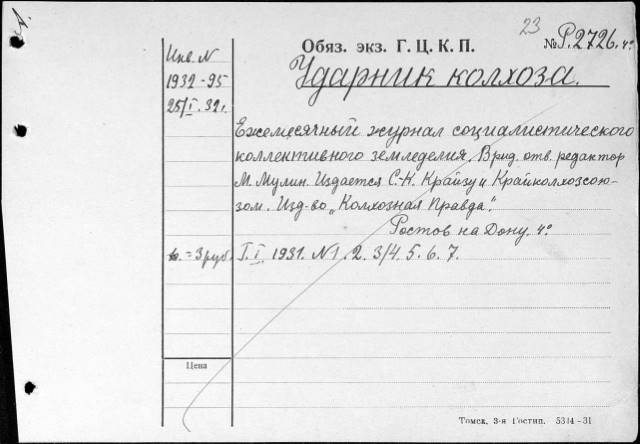 23
Обяз. экз. Г. Ц. К. П. № Р.2726. 4°
Ударник колхоза.
Инв. N
1932-95
25/I. 32г.
Ежемесячный журнал социалистического
коллективного земледелия. Врид. отв. редактор
М. Мулин. Издается С.-К. Крайзу и Крайколхозсою-
зом. Изд-во „Колхозная Правда".
Ростов на Дону. 4°
= 3 руб. Г. I. 1931. N1. 2. 3/4. 5. 6. 7.
Цена
Томск. 3-я Гостип. 5344-31